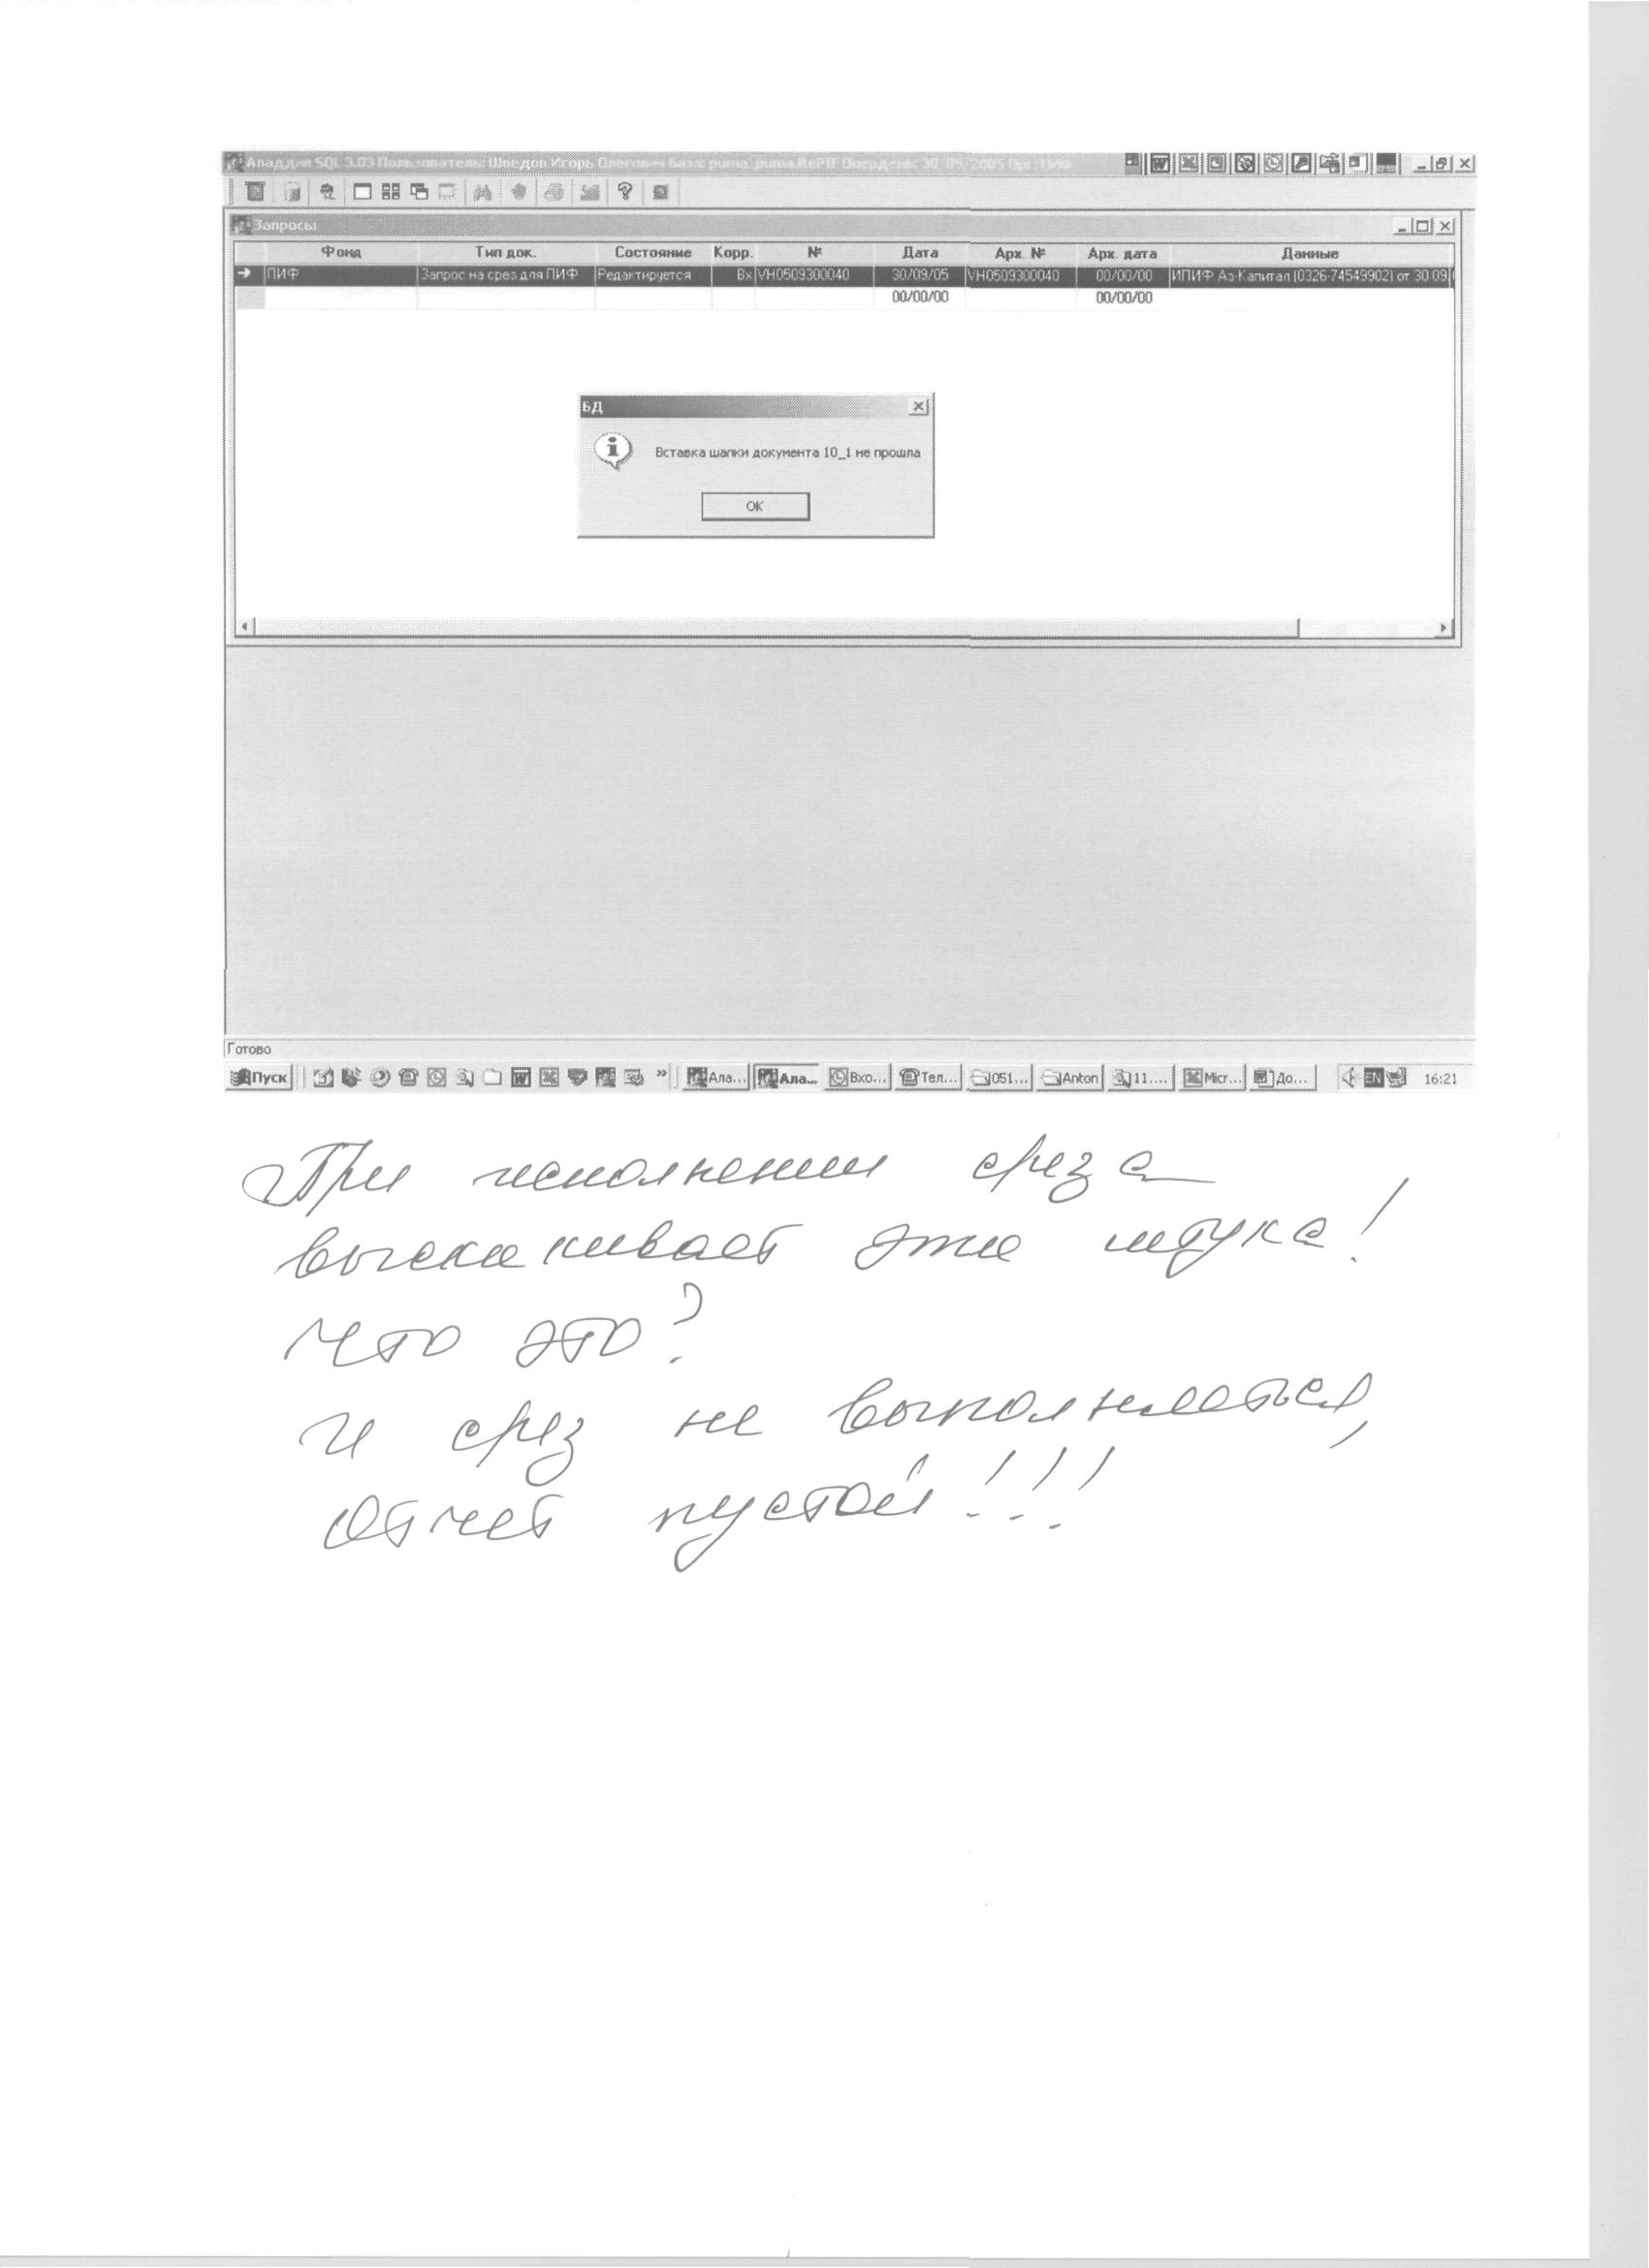 Аладдин SQL 3.03 Пользователь: Шведов Игорь Олегович База: puma\puma.RePIF Опердень: 30/09/2005
Запросы
Фонд Тип док. Состояние Корр. № Дата Арх. № Арх. дата Данные
ПИФ Запрос на срез для ПИФ Редактируется Вх VH0509300040 30/09/05 VH0509300040 00/00/00 ИПИФ Аз-Капитал (0326-74549902) от 30 09
00/00/00 00/00/00
БД
Вставка шапки документа 10_1 не прошла
OK
Готово
Пуск » Ала... Ала... Вхо... Тел... 051... Anton 11.... Micr... До... EN 16:21
При исполнении среза
выскакивает эта штука!
Что это?
И срез не выполняется,
отчет пустой!!!